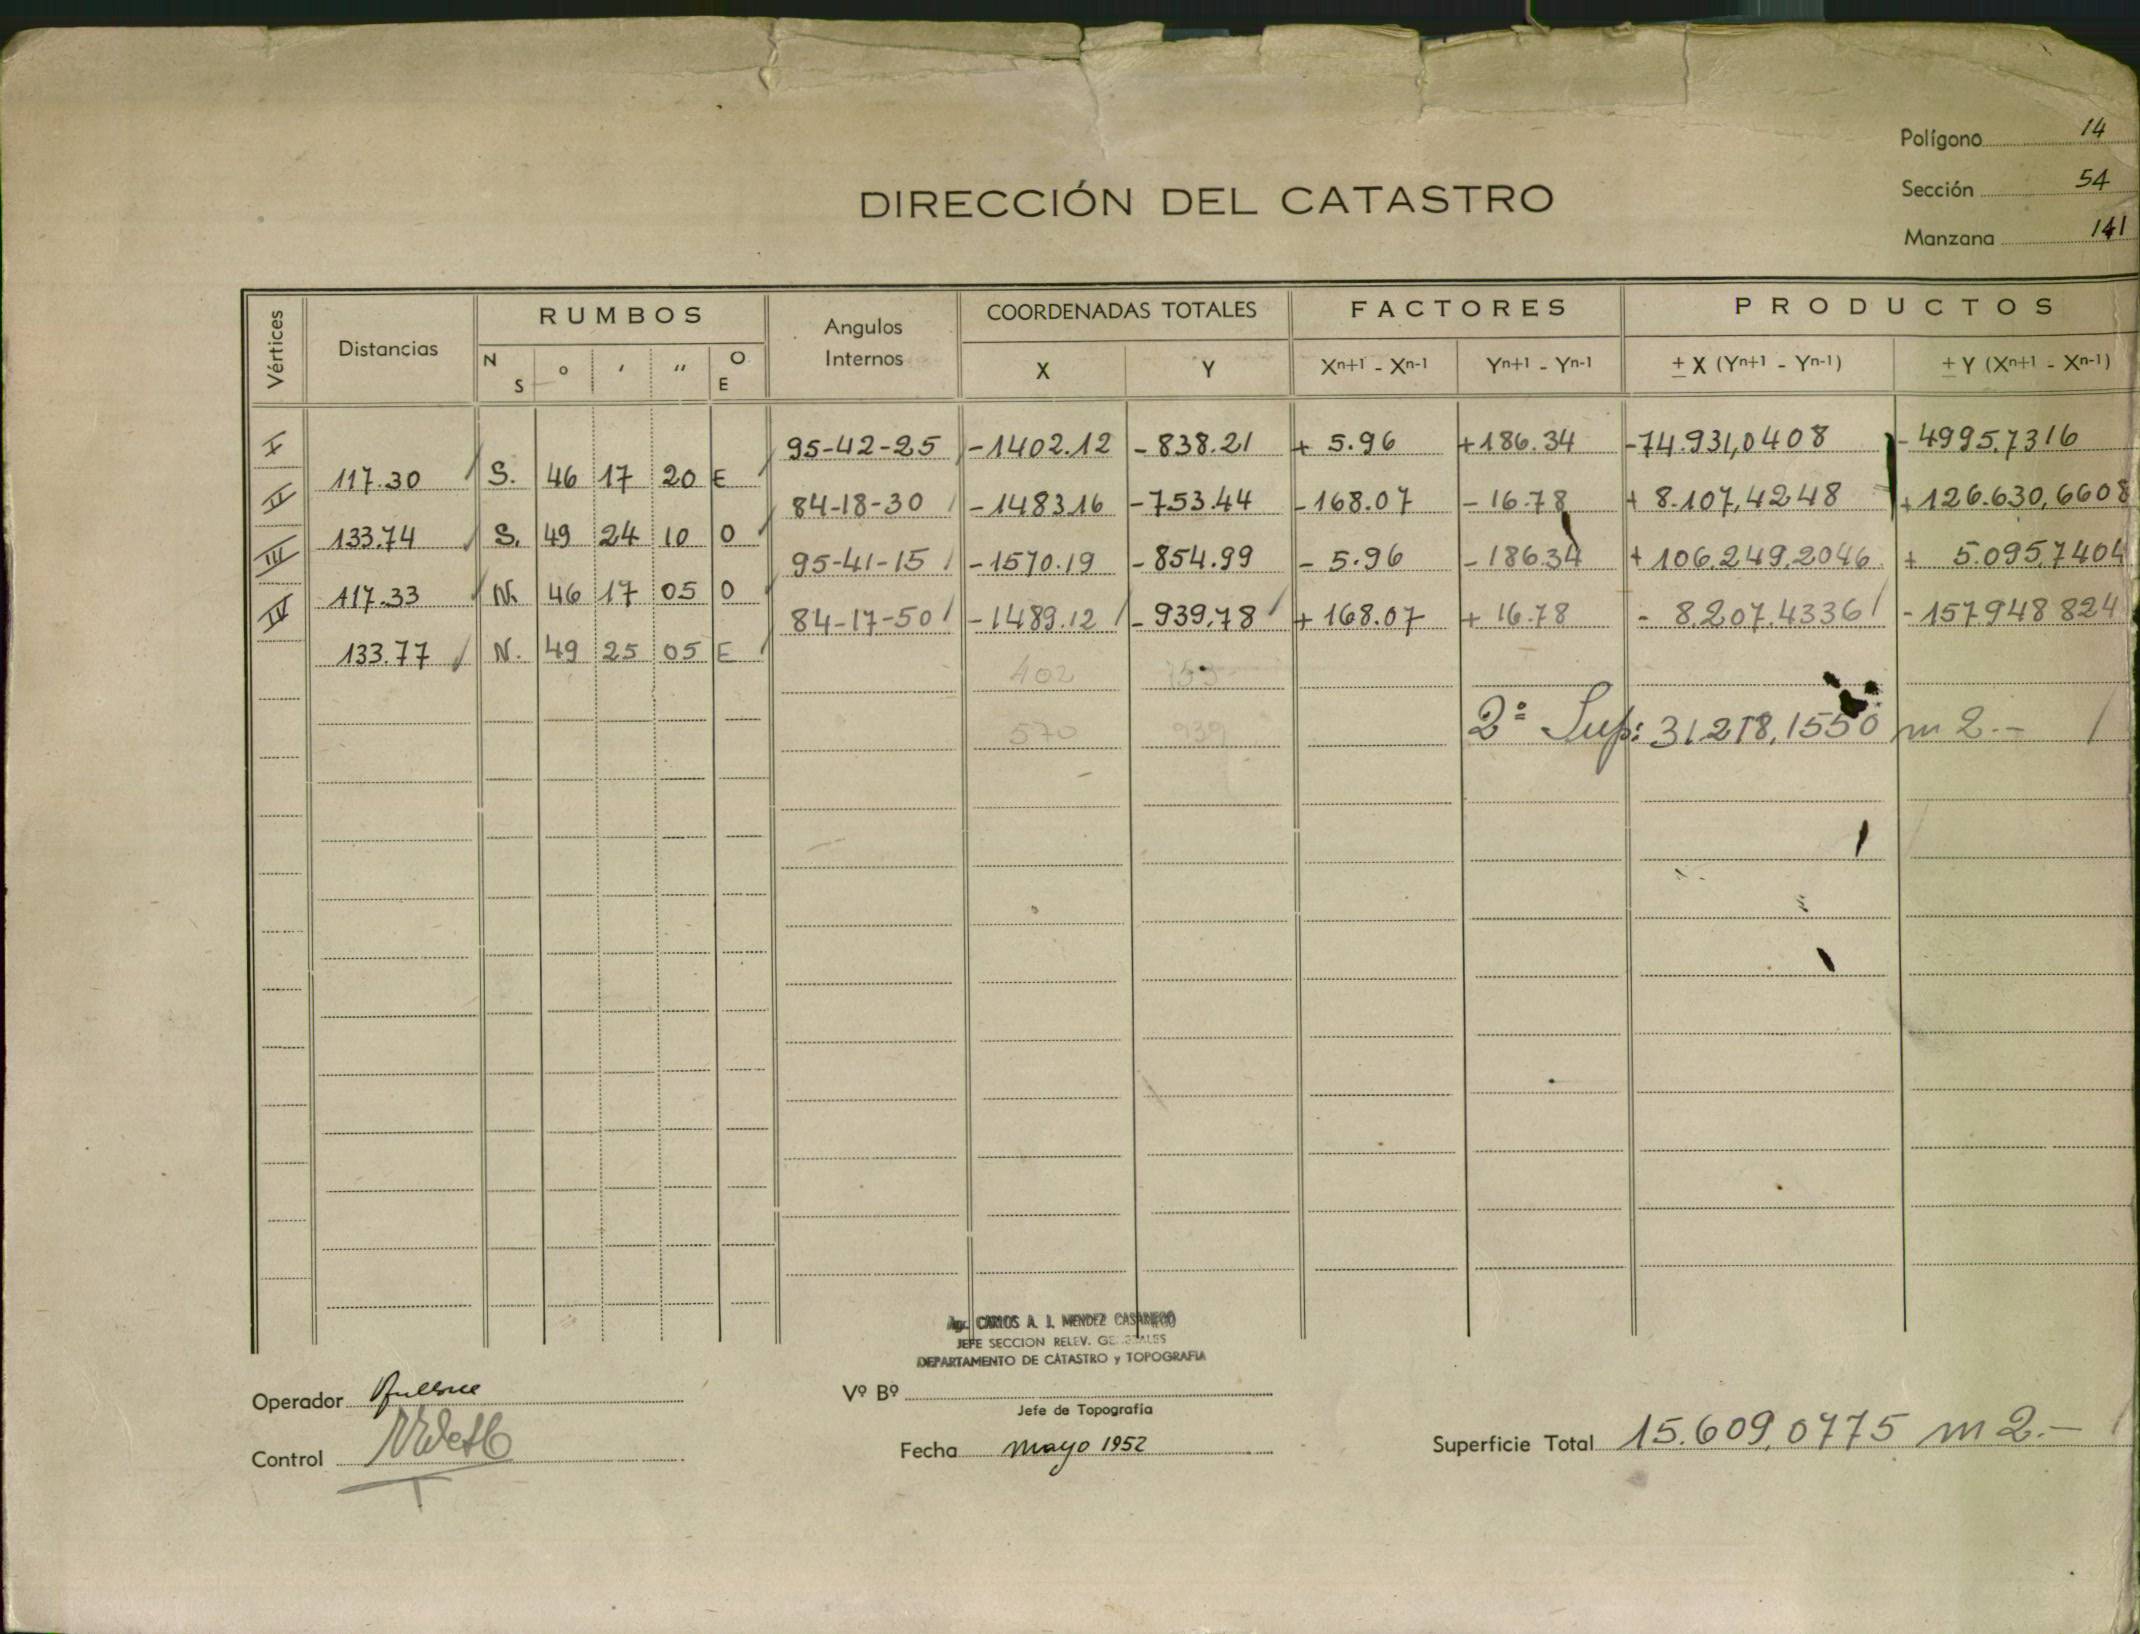 Polígono 14
Sección 54
Manzana 141
DIRECCIÓN DEL CATASTRO
Vértices Distancias RUMBOS Angulos Internos COORDENADAS TOTALES FACTORES PRODUCTOS
N S ° ' " O E X Y Xn+1 - Xn-1 Yn+1 - Yn-1 ± X (Yn+1 - Yn-1) ± Y (Xn+1 - Xn-1)
I 95-42-25 -1402.12 -838.21 + 5.96 +186.34 -74.931,0408 -4995.7316
117.30 S. 46 17 20 E
II 84-18-30 -1483.16 -753.44 -168.07 -16.78 + 8.107,4248 +126.630,6608
133.74 S. 49 24 10 O
III 95-41-15 -1570.19 -854.99 - 5.96 -186.34 +106.249,2046 + 5.095,7404
117.33 N. 46 17 05 O
IV 84-17-50 -1489.12 -939,78 +168.07 + 16.78 - 8.207.4336 -157948 824
133.77 N. 49 25 05 E
402
570 939
2º Sup: 31218,1550 m 2.-
CARLOS A. J. MENDEZ
JEFE SECCION RELEV.
DEPARTAMENTO DE CATASTRO y TOPOGRAFIA
Operador
Vº Bº
Jefe de Topografía
Control
Fecha mayo 1952
Superficie Total 15.609,0775 m 2.-